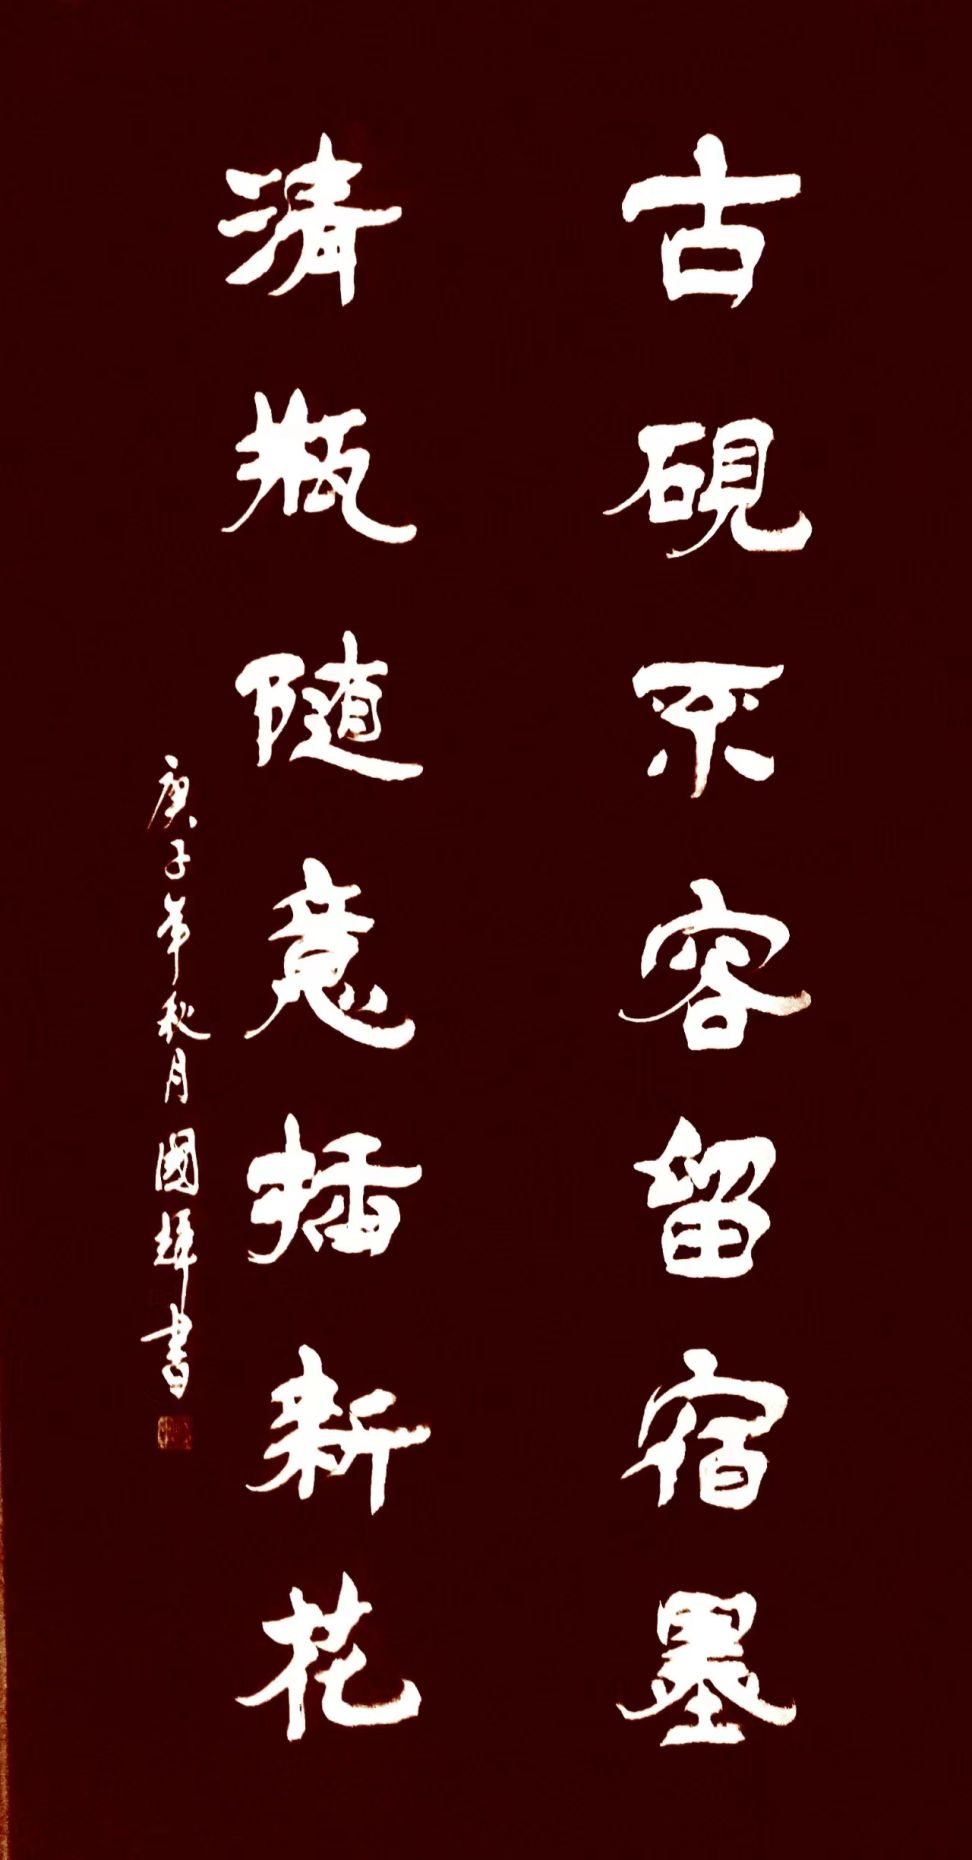 古硯不容留宿墨
清瓶随意插新花
庚子年秋月國輝書